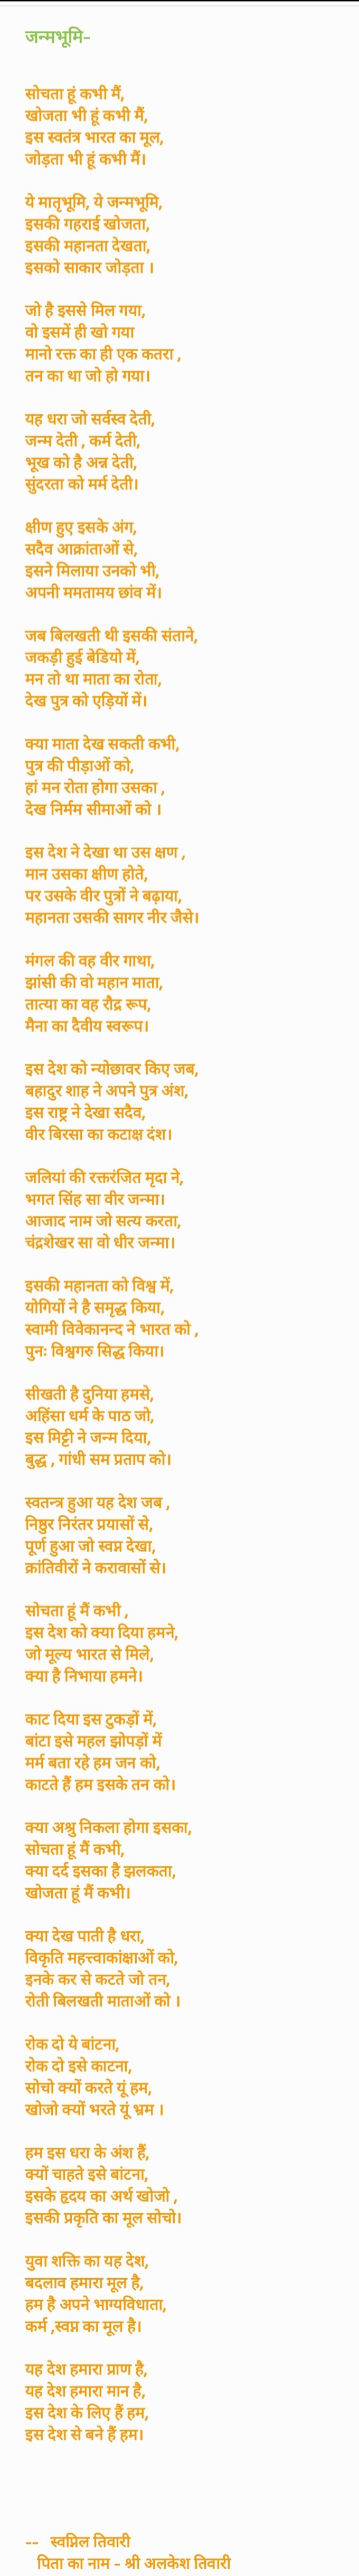 जन्मभूमि-
सोचता हूं कभी मैं,
खोजता भी हूं कभी मैं,
इस स्वतंत्र भारत का मूल,
जोड़ता भी हूं कभी मैं।
ये मातृभूमि, ये जन्मभूमि,
इसकी गहराई खोजता,
इसकी महानता देखता,
इसको साकार जोड़ता ।
जो है इससे मिल गया,
वो इसमें ही खो गया
मानो रक्त का ही एक कतरा ,
तन का था जो हो गया।
यह धरा जो सर्वस्व देती,
जन्म देती , कर्म देती,
भूख को है अन्न देती,
सुंदरता को मर्म देती।
क्षीण हुए इसके अंग,
सदैव आक्रांताओं से,
इसने मिलाया उनको भी,
अपनी ममतामय छांव में।
जब बिलखती थी इसकी संताने,
जकड़ी हुई बेडियो में,
मन तो था माता का रोता,
देख पुत्र को एड़ियों में।
क्या माता देख सकती कभी,
पुत्र की पीड़ाओं को,
हां मन रोता होगा उसका ,
देख निर्मम सीमाओं को ।
इस देश ने देखा था उस क्षण ,
मान उसका क्षीण होते,
पर उसके वीर पुत्रों ने बढ़ाया,
महानता उसकी सागर नीर जैसे।
मंगल की वह वीर गाथा,
झांसी की वो महान माता,
तात्या का वह रौद्र रूप,
मैना का दैवीय स्वरूप।
इस देश को न्योछावर किए जब,
बहादुर शाह ने अपने पुत्र अंश,
इस राष्ट्र ने देखा सदैव,
वीर बिरसा का कटाक्ष दंश।
जलियां की रक्तरंजित मृदा ने,
भगत सिंह सा वीर जन्मा।
आजाद नाम जो सत्य करता,
चंद्रशेखर सा वो धीर जन्मा।
इसकी महानता को विश्व में,
योगियों ने है समृद्ध किया,
स्वामी विवेकानन्द ने भारत को ,
पुनः विश्वगरु सिद्ध किया।
सीखती है दुनिया हमसे,
अहिंसा धर्म के पाठ जो,
इस मिट्टी ने जन्म दिया,
बुद्ध , गांधी सम प्रताप को।
स्वतन्त्र हुआ यह देश जब ,
निष्ठुर निरंतर प्रयासों से,
पूर्ण हुआ जो स्वप्न देखा,
क्रांतिवीरों ने करावासों से।
सोचता हूं मैं कभी ,
इस देश को क्या दिया हमने,
जो मूल्य भारत से मिले,
क्या है निभाया हमने।
काट दिया इस टुकड़ों में,
बांटा इसे महल झोपड़ों में
मर्म बता रहे हम जन को,
काटते हैं हम इसके तन को।
क्या अश्रु निकला होगा इसका,
सोचता हूं मैं कभी,
क्या दर्द इसका है झलकता,
खोजता हूं मैं कभी।
क्या देख पाती है धरा,
विकृति महत्त्वाकांक्षाओं को,
इनके कर से कटते जो तन,
रोती बिलखती माताओं को ।
रोक दो ये बांटना,
रोक दो इसे काटना,
सोचो क्यों करते यूं हम,
खोजो क्यों भरते यूं भ्रम ।
हम इस धरा के अंश हैं,
क्यों चाहते इसे बांटना,
इसके हृदय का अर्थ खोजो ,
इसकी प्रकृति का मूल सोचो।
युवा शक्ति का यह देश,
बदलाव हमारा मूल है,
हम है अपने भाग्यविधाता,
कर्म ,स्वप्न का मूल है।
यह देश हमारा प्राण है,
यह देश हमारा मान है,
इस देश के लिए हैं हम,
इस देश से बने हैं हम।
-- स्वप्निल तिवारी
पिता का नाम - श्री अलकेश तिवारी